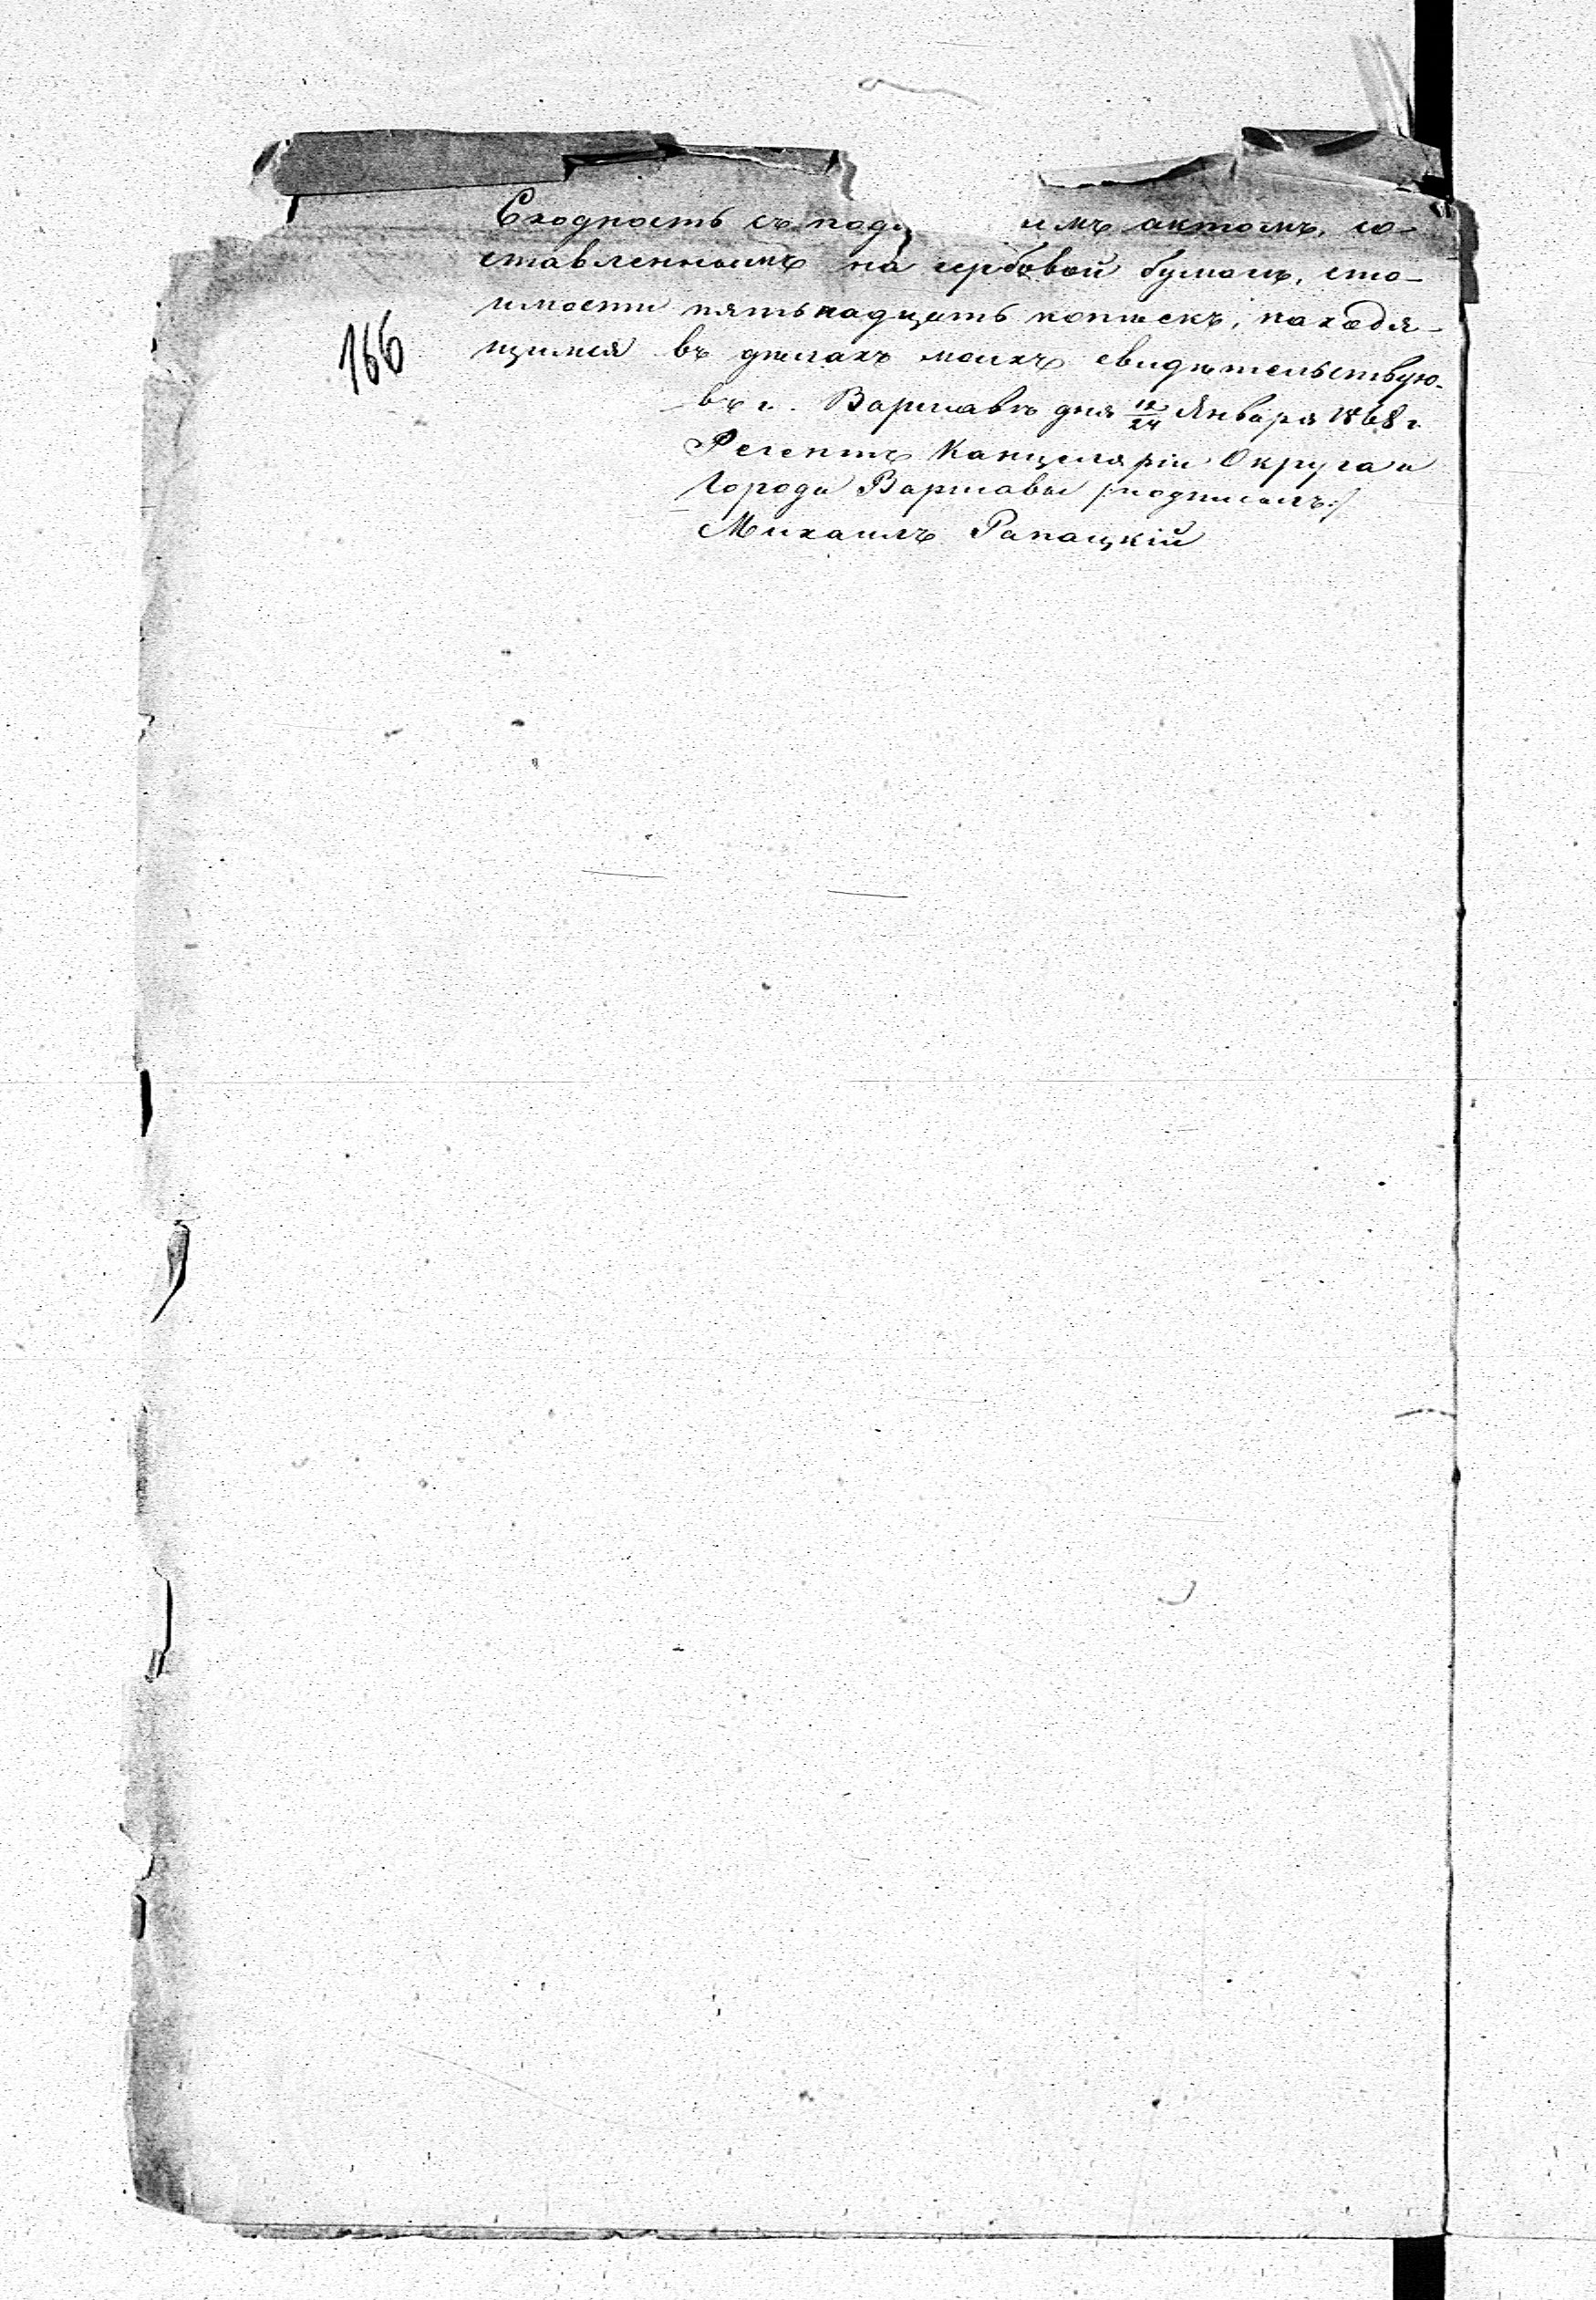 Сходность съ под имъ актомъ, со-
ставленнымъ на гербовой бумагѣ, сто-
имости пятьнадцать копѣекъ, находя-
166
щимся въ дѣлахъ моихъ свидѣтельствую.
въ г. Варшавѣ дня 12/24 Января 1868 г.
Регентъ Канцеляріи Округа и
Города Варшавы /:подписалъ:/
Михаилъ Рапацкій